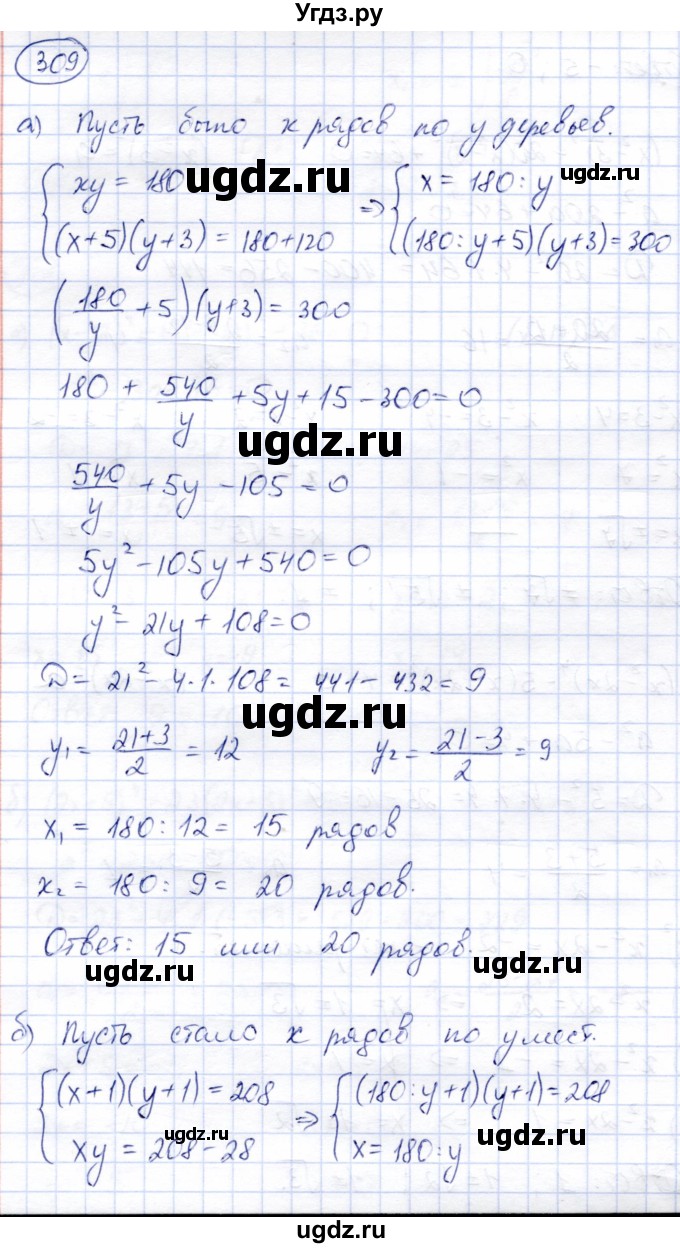 Угдз.ру
309
а) Пусть было x рядов по y деревьев.
{ xy = 180 => { x = 180 : y
(x+5)(y+3) = 180+120 (180:y+5)(y+3) = 300
ugdz.ru ugdz.ru
ugdz.ru
(180/y + 5)(y+3) = 300
180 + 540/y + 5y + 15 - 300 = 0
ugdz.ru
540/y + 5y - 105 = 0
5y² - 105y + 540 = 0
y² - 21y + 108 = 0
D = 21² - 4·1·108 = 441 - 432 = 9
ugdz.ru
y₁ = (21+3)/2 = 12 y₂ = (21-3)/2 = 9
x₁ = 180 : 12 = 15 рядов
x₂ = 180 : 9 = 20 рядов.
Ответ: 15 или 20 рядов.
ugdz.ru ugdz.ru
б) Пусть стало x рядов по y мест.
{ (x+1)(y+1) = 208 => { (180:y+1)(y+1) = 208
xy = 208-28 x = 180:y
ugdz.ru ugdz.ru
ugdz.ru